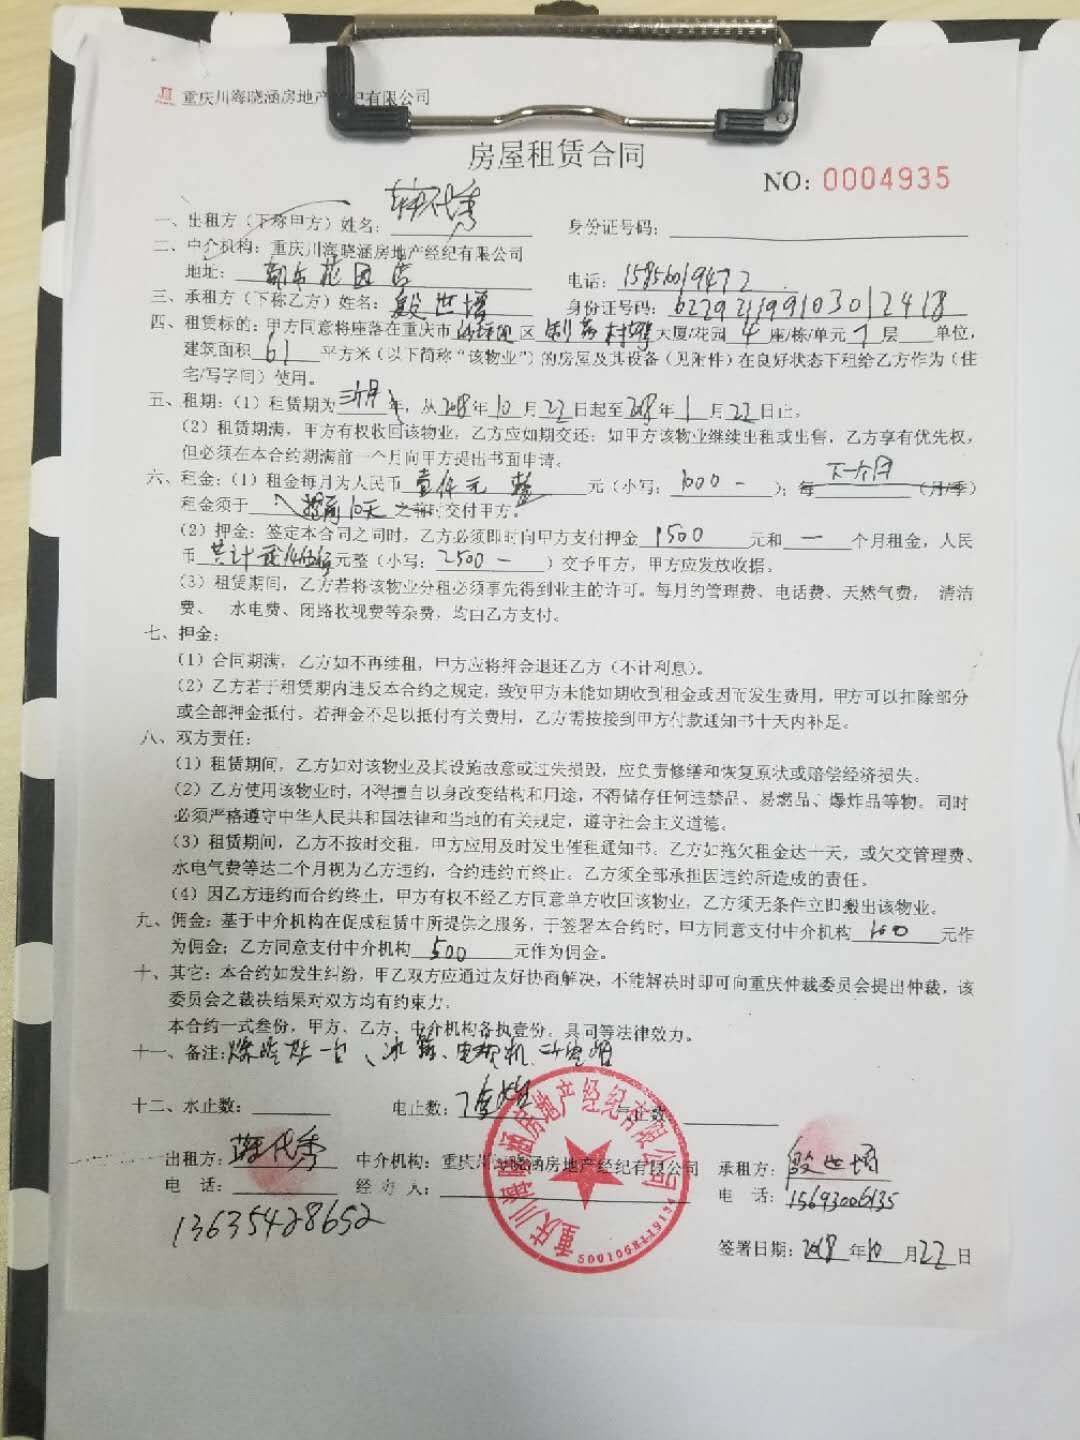 重庆川海晓涵房地产经纪有限公司
房屋租赁合同
NO: 0004935
一、出租方（下称甲方）姓名： 代秀 身份证号码：
二、中介机构：重庆川海晓涵房地产经纪有限公司
地址： 花园店 电话：15856019472
三、承租方（下称乙方）姓名：殷世增 身份证号码：622921199103012418
四、租赁标的：甲方同意将座落在重庆市 区 大厦/花园 4 座/栋/单元 7 层 单位，
建筑面积 61 平方米（以下简称“该物业”）的房屋及其设备（见附件）在良好状态下租给乙方作为（住
宅/写字间）使用。
五、租期：（1）租赁期为 三个月 年，从 2018 年 10 月 22 日起至 2018 年 1 月 22 日止。
（2）租赁期满，甲方有权收回该物业，乙方应如期交还；如甲方该物业继续出租或出售，乙方享有优先权，
但必须在本合约期满前一个月向甲方提出书面申请。
六、租金：（1）租金每月为人民币 壹仟元 整 元（小写：1000 - ）；每 下一个月 （月/季）
租金须于 提前10天 之前时交付甲方。
（2）押金：签定本合同之同时，乙方必须即时向甲方支付押金 1500 元和 一 个月租金，人民
币 共计 元整（小写：2500 - ）交予甲方，甲方应发放收据。
（3）租赁期间，乙方若将该物业分租必须事先得到业主的许可。每月的管理费、电话费、天然气费， 清洁
费、 水电费、闭路收视费等杂费，均由乙方支付。
七、押金：
（1）合同期满，乙方如不再续租，甲方应将押金退还乙方（不计利息）。
（2）乙方若于租赁期内违反本合约之规定，致使甲方未能如期收到租金或因而发生费用，甲方可以扣除部分
或全部押金抵付。若押金不足以抵付有关费用，乙方需按接到甲方付款通知书十天内补足。
八、双方责任：
（1）租赁期间，乙方如对该物业及其设施故意或过失损毁，应负责修缮和恢复原状或赔偿经济损失。
（2）乙方使用该物业时，不得擅自以身改变结构和用途，不得储存任何违禁品、易燃品、爆炸品等物。同时
必须严格遵守中华人民共和国法律和当地的有关规定，遵守社会主义道德。
（3）租赁期间，乙方不按时交租，甲方应用及时发出催租通知书。乙方如拖欠租金达十天，或欠交管理费、
水电气费等达二个月视为乙方违约，合约违约而终止。乙方须全部承担因违约所造成的责任。
（4）因乙方违约而合约终止，甲方有权不经乙方同意单方收回该物业，乙方须无条件立即搬出该物业。
九、佣金：基于中介机构在促成租赁中所提供之服务，于签署本合约时，甲方同意支付中介机构 100 元作
为佣金；乙方同意支付中介机构 500 元作为佣金。
十、其它：本合约如发生纠纷，甲乙双方应通过友好协商解决，不能解决时即可向重庆仲裁委员会提出仲裁，该
委员会之裁决结果对双方均有约束力。
本合约一式叁份，甲方、乙方、中介机构各执壹份。具同等法律效力。
十一、备注： 一台、冰箱、电视机
十二、水止数： 电止数： 气止数：
出租方： 代秀 中介机构：重庆川海晓涵房地产经纪有限公司 承租方：殷世增
电 话： 经 办 人： 电 话：15693006135
13635428652
签署日期：2018 年 10 月 22 日
重庆川海晓涵房地产经纪有限公司